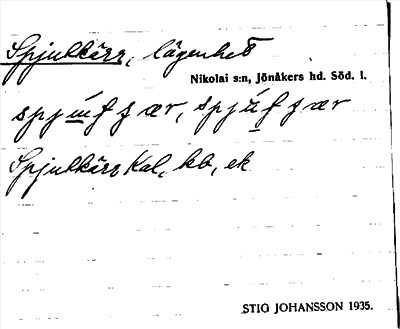 Spjutkärr, lägenhet
Nikolai s:n, Jönåkers hd. Söd. l.
Spjutkärr Kal, kb, ek
STIG JOHANSSON 1935.